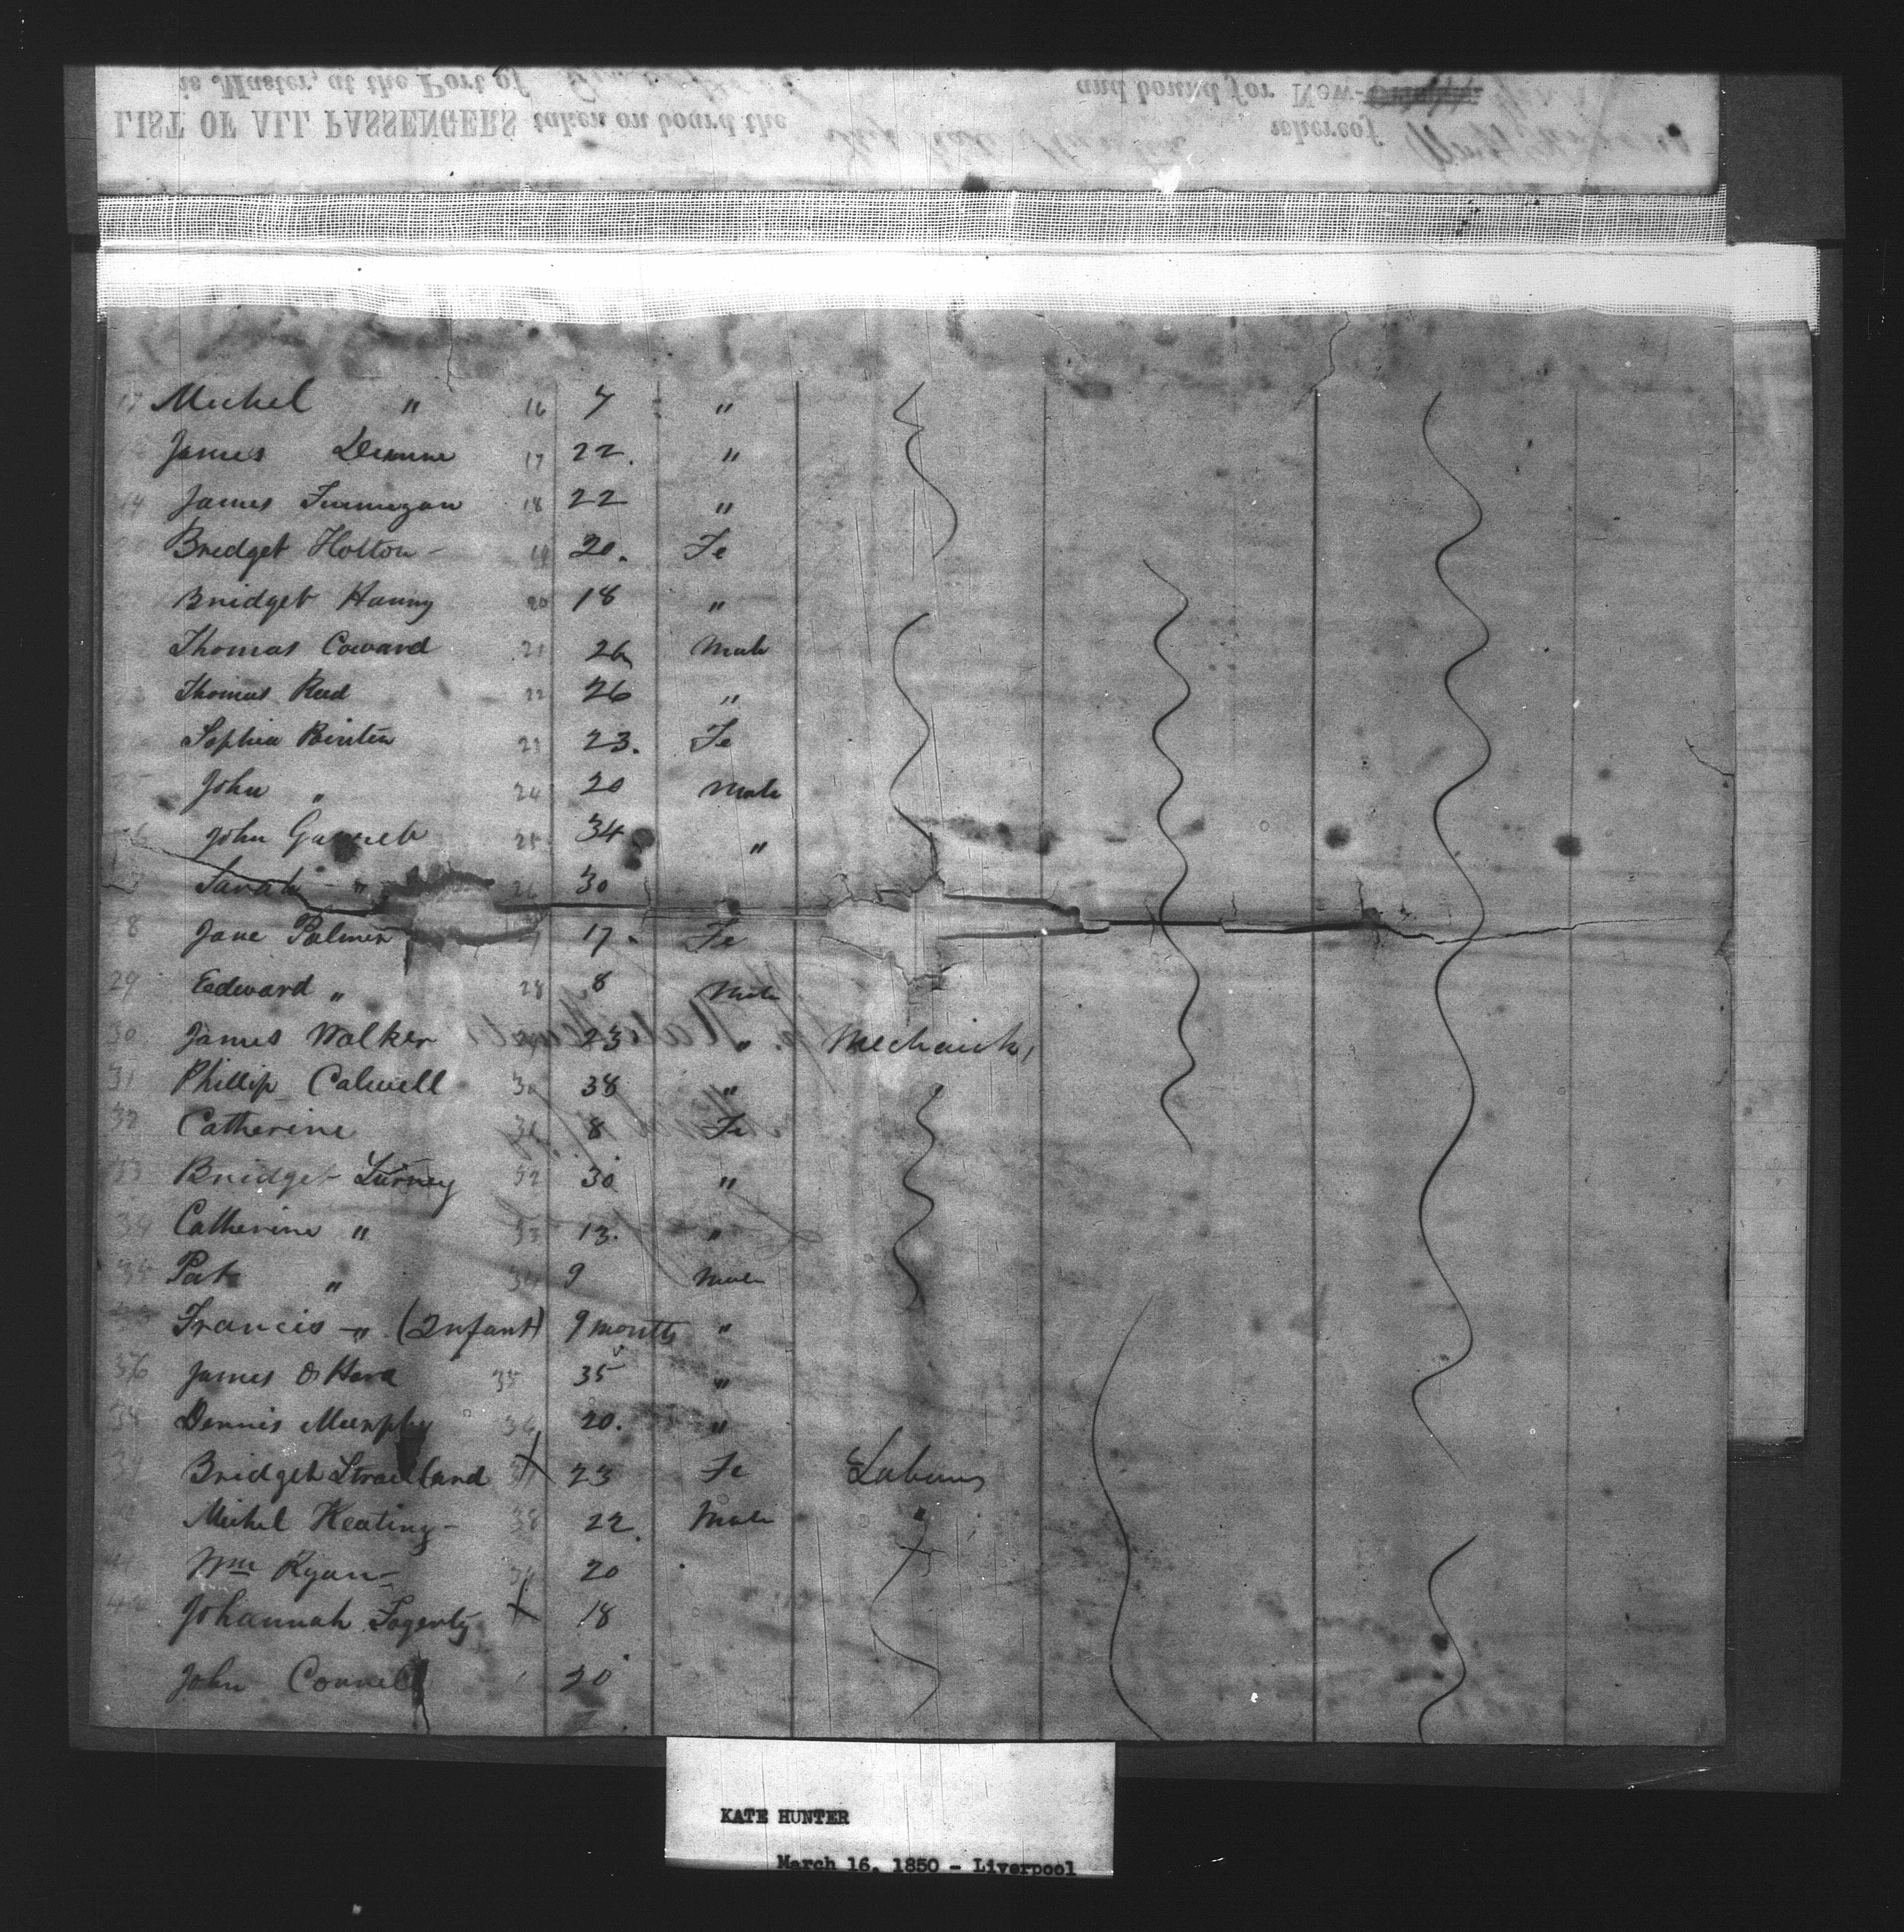 is Master, at the Port of and bound for New-
LIST OF ALL PASSENGERS taken on board the Ship Kate Hunter whereof
17 Michel " 16 7 "
James Dunne 17 22. "
19 James Finnegan 18 22 "
Bridget Holton - 19 20. Fe
Bridget Hanny 20 18 "
Thomas Coward 21 26 Male
23 Thomas Reed 22 26 "
Sophia Binten 23 23. Fe
John " 24 20 Male
John Garnet 25 34 "
Sarah - " 26 30
8 Jane Palmer 17. Fe
29 Edward " 28 8 Male
30 James Walker 29 23 " Mechanick
31 Phillip Calwell 30 38 "
32 Catherine 31 8 Fe
33 Bridget Lurney 32 30 "
34 Catherine " 33 13. "
35 Pat " 34 9 Male
Francis - " (Infant) 9 months "
36 James O Hara 35 35 "
38 Dennis Murphy 36 20. "
39 Bridget X 23 Fe Labourers
Michel Keating - 38 22. Male "
41 Wm Ryan - 39 20
42 Johannah Fogerty X 18
John Connell 20
KATE HUNTER
March 16, 1850 - Liverpool